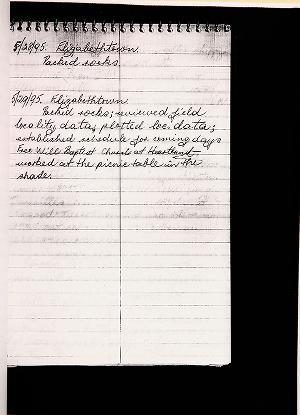 5/28/95. Elizabethtown.
Packed rocks.
5/29/95. Elizabethtown
Packed rocks; reviewed field
locality data; plotted loc. data;
established schedule for coming days
Free Will Baptist Church at Heartland
worked at the picnic table in the
shade.